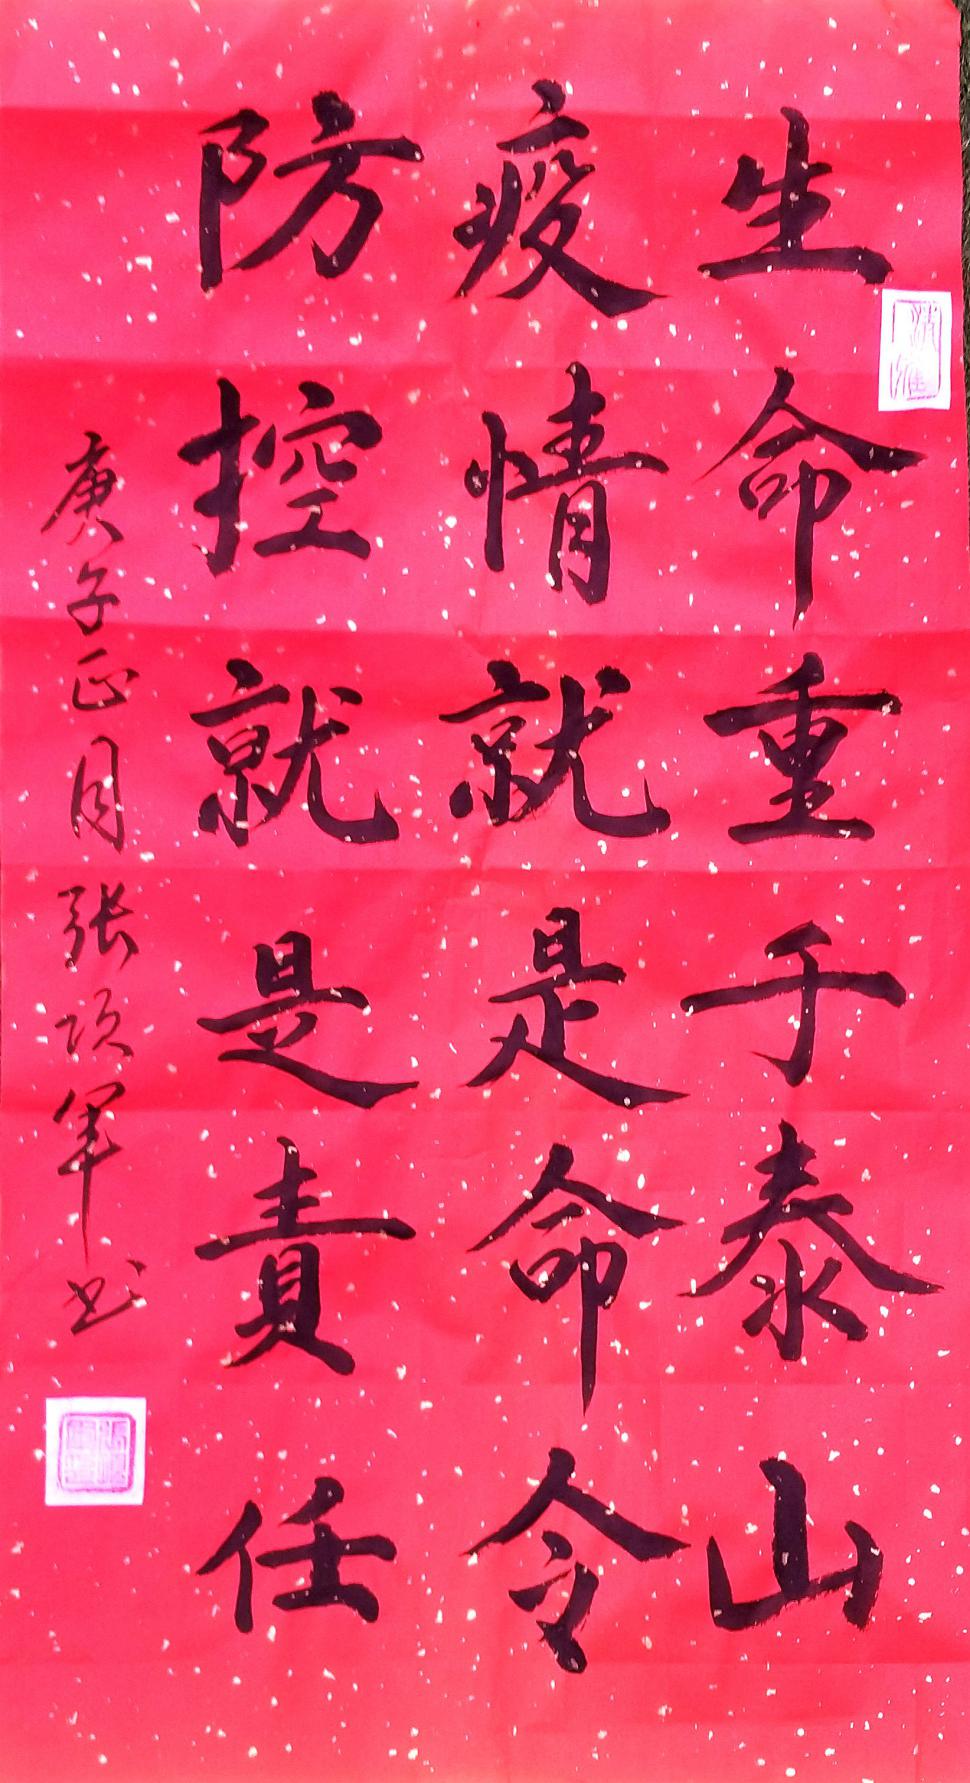 生命重于泰山
疫情就是命令
防控就是责任
庚子正月张项军书